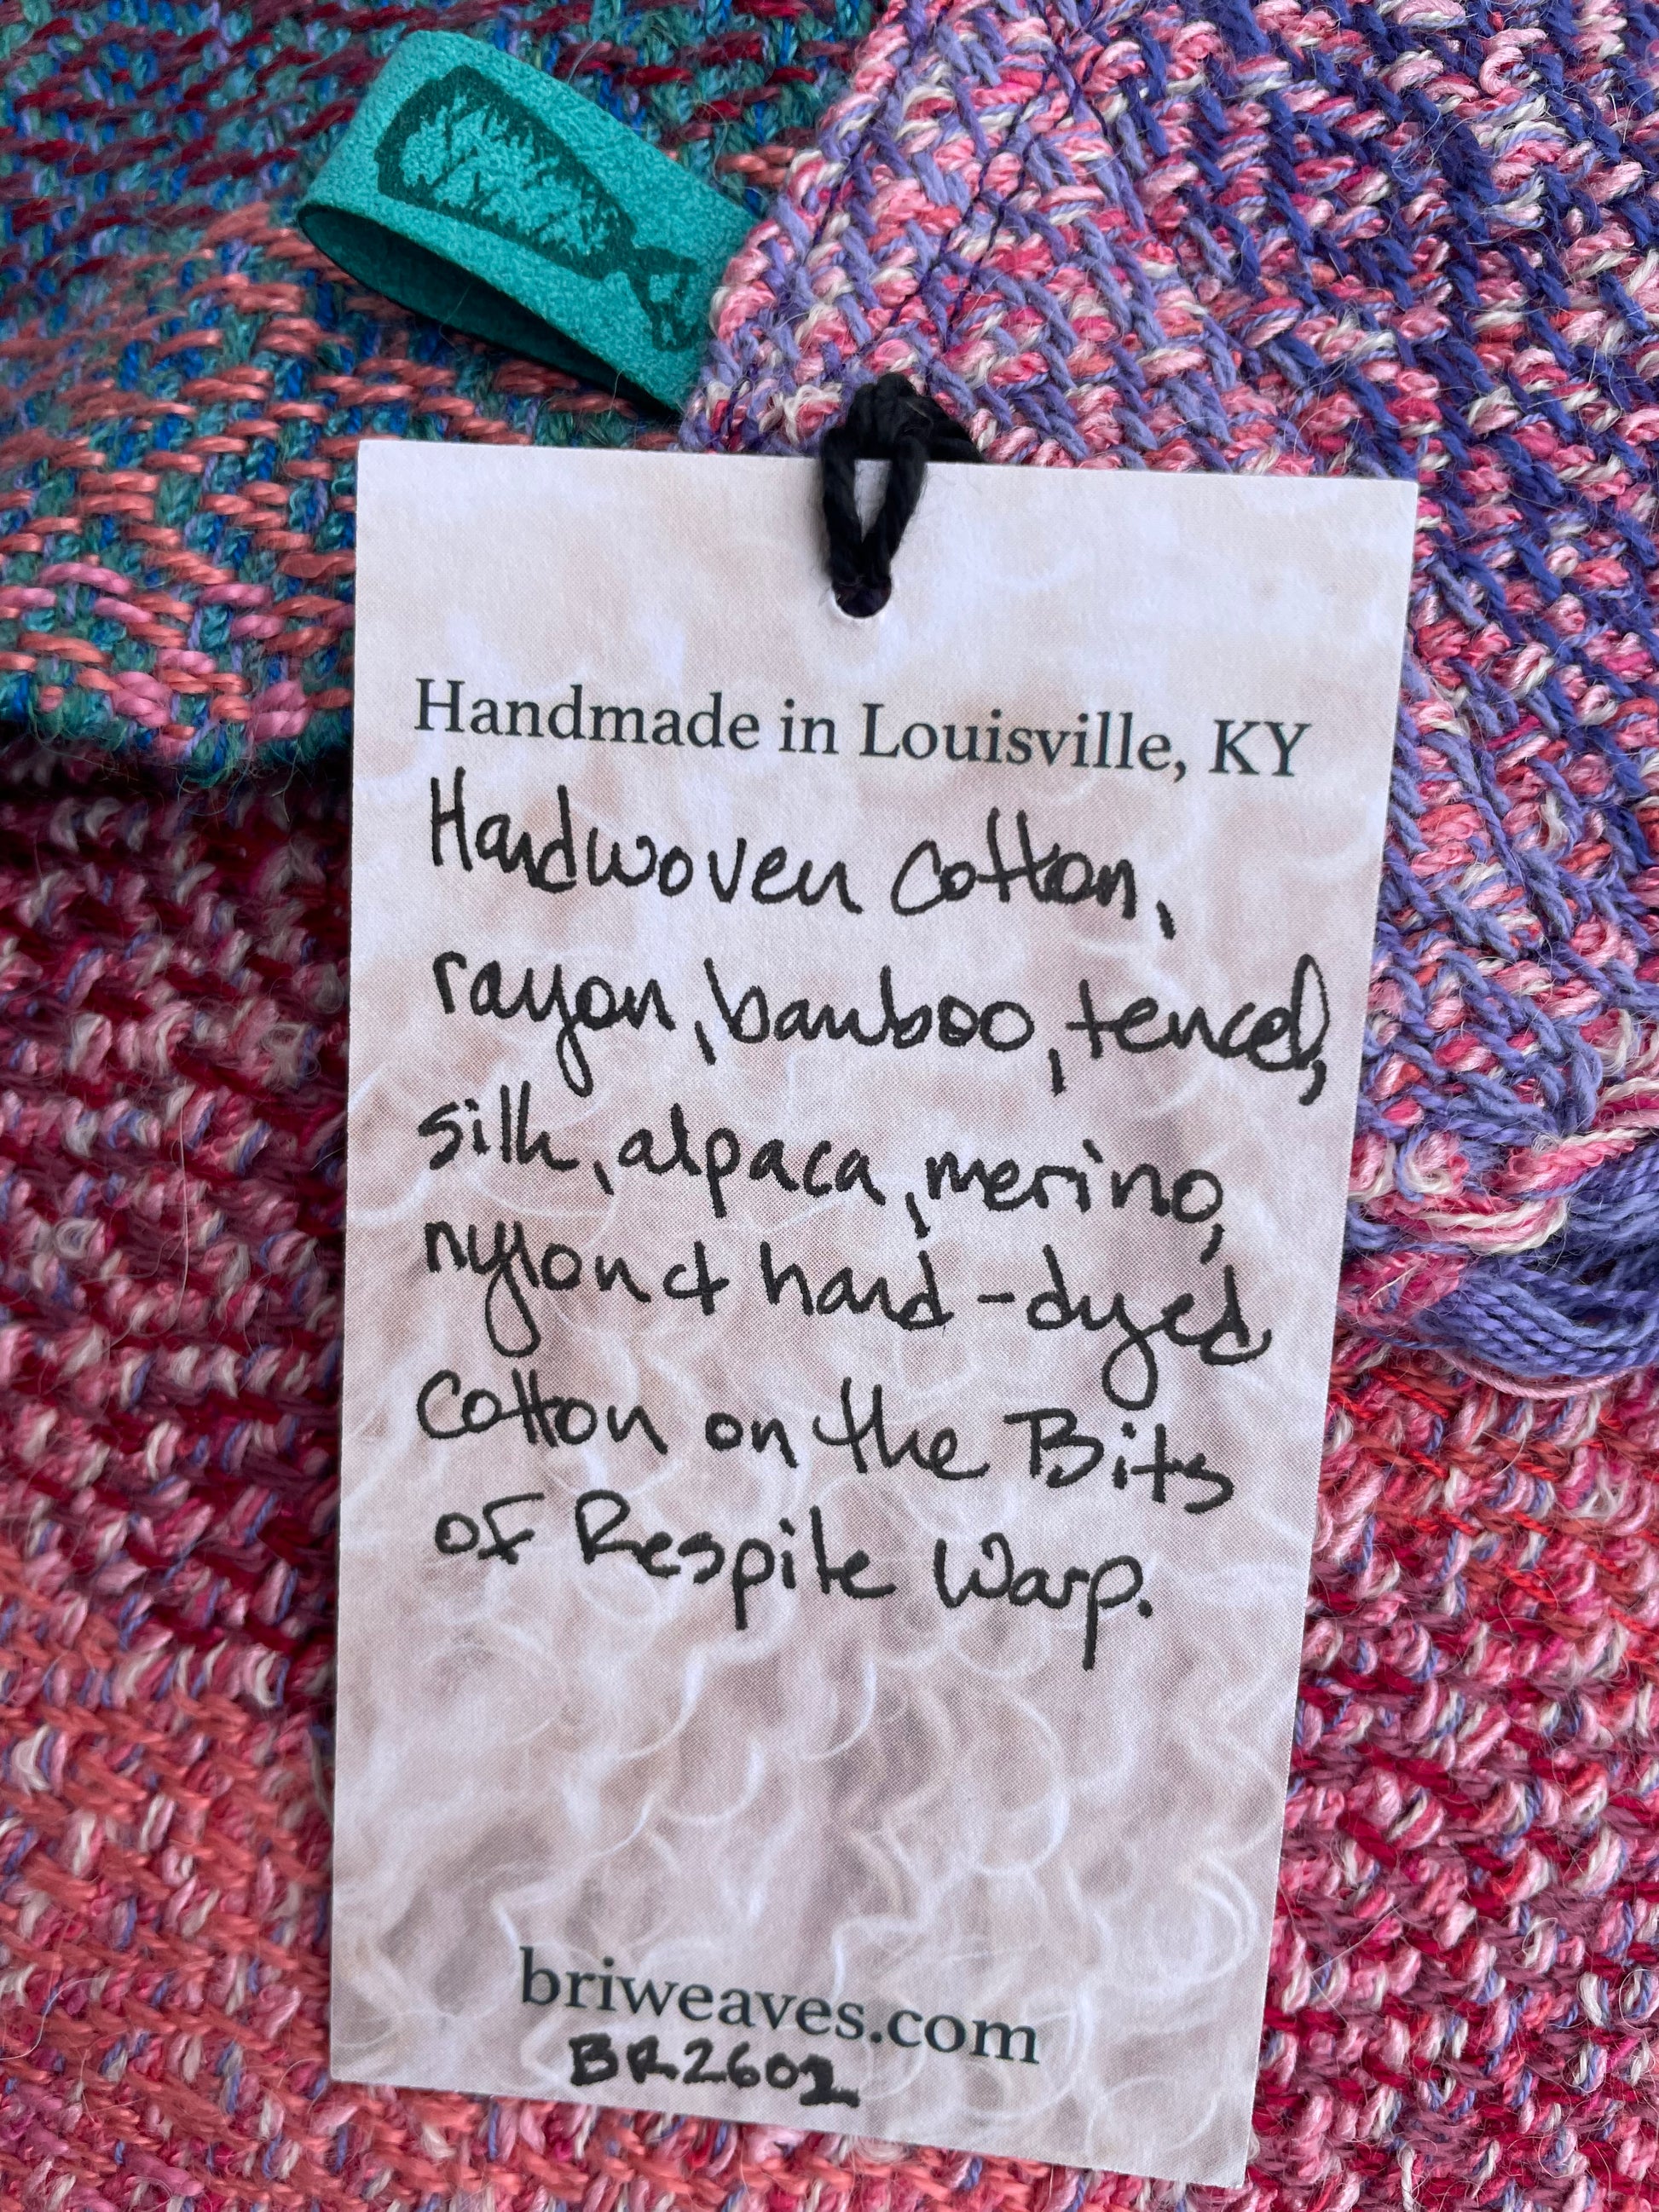 Handmade in Louisville, KY
Handwoven Cotton,
rayon, bamboo, tencel,
silk, alpaca, merino,
nylon & hand-dyed
Cotton on the Bits
of Respite Warp.
briweaves.com